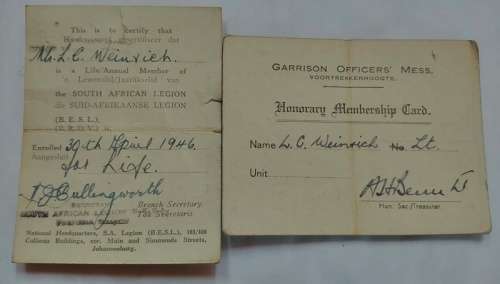 This is to certify that
Hiermee word gesertifiseer dat
Mr. L. C. Weinrich
is a Life/Annual Member of
'n Lewenslid/Jaarlikse lid van
the SOUTH AFRICAN LEGION
die SUID-AFRIKAANSE LEGION
(B.E.S.L.)
Enrolled 30th April 1946.
Aangesluit for Life.
Cullingworth
Branch Secretary.
Tak Sekretaris
SOUTH AFRICAN LEGION
National Headquarters, S.A. Legion (B.E.S.L.), 103/108
Cullinan Buildings, cor. Main and Simmonds Streets,
Johannesburg.
GARRISON OFFICERS' MESS,
VOORTREKKERHOOGTE.
Honorary Membership Card.
Name L. C. Weinrich No. Lt.
Unit
Hon. Sec./Treasurer.